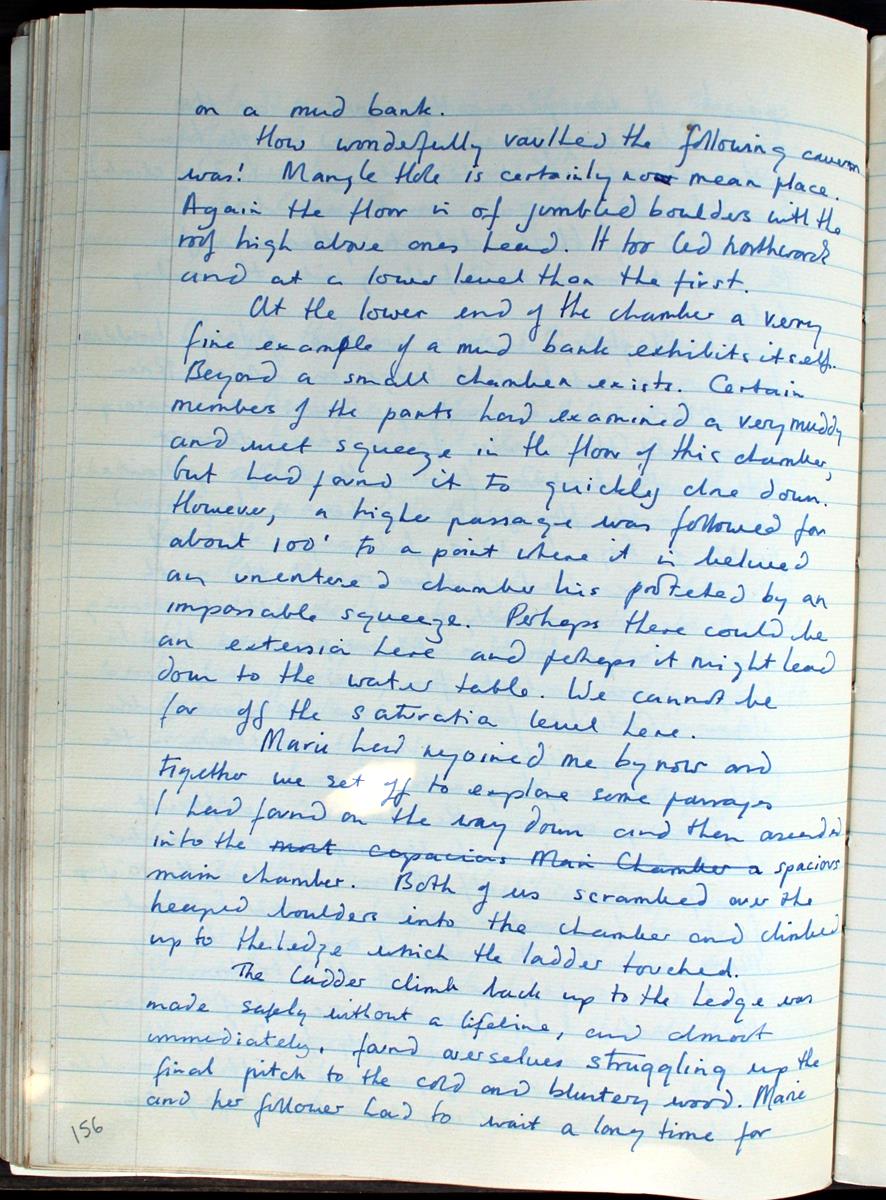 on a mud bank.
How wonderfully vaulted the following cavern
was! Mangle Hole is certainly no mean place.
Again the floor is of jumbled boulders with the
roof high above ones head. It too led northwards
and at a lower level than the first.
At the lower end of the chamber a very
fine example of a mud bank exhibits itself.
Beyond a small chamber exists. Certain
members of the party had examined a very muddy
and wet squeeze in the floor of this chamber,
but had found it to quickly close down.
However, a higher passage was followed for
about 100' to a point where it is believed
an unentered chamber lies protected by an
impassable squeeze. Perhaps there could be
an extension here and perhaps it might lead
down to the water table. We cannot be
far off the saturation level here.
Marie had rejoined me by now and
together we set off to explore some passages
I had found on the way down and then ascended
into the most capacious Main Chamber a spacious
main chamber. Both of us scrambled over the
heaped boulders into the chamber and climbed
up to the ledge which the ladder touched.
The ladder climb back up to the ledge was
made safely without a lifeline, and almost
immediately, found ourselves struggling up the
final pitch to the cold and blustery wood. Marie
and her follower had to wait a long time for
156